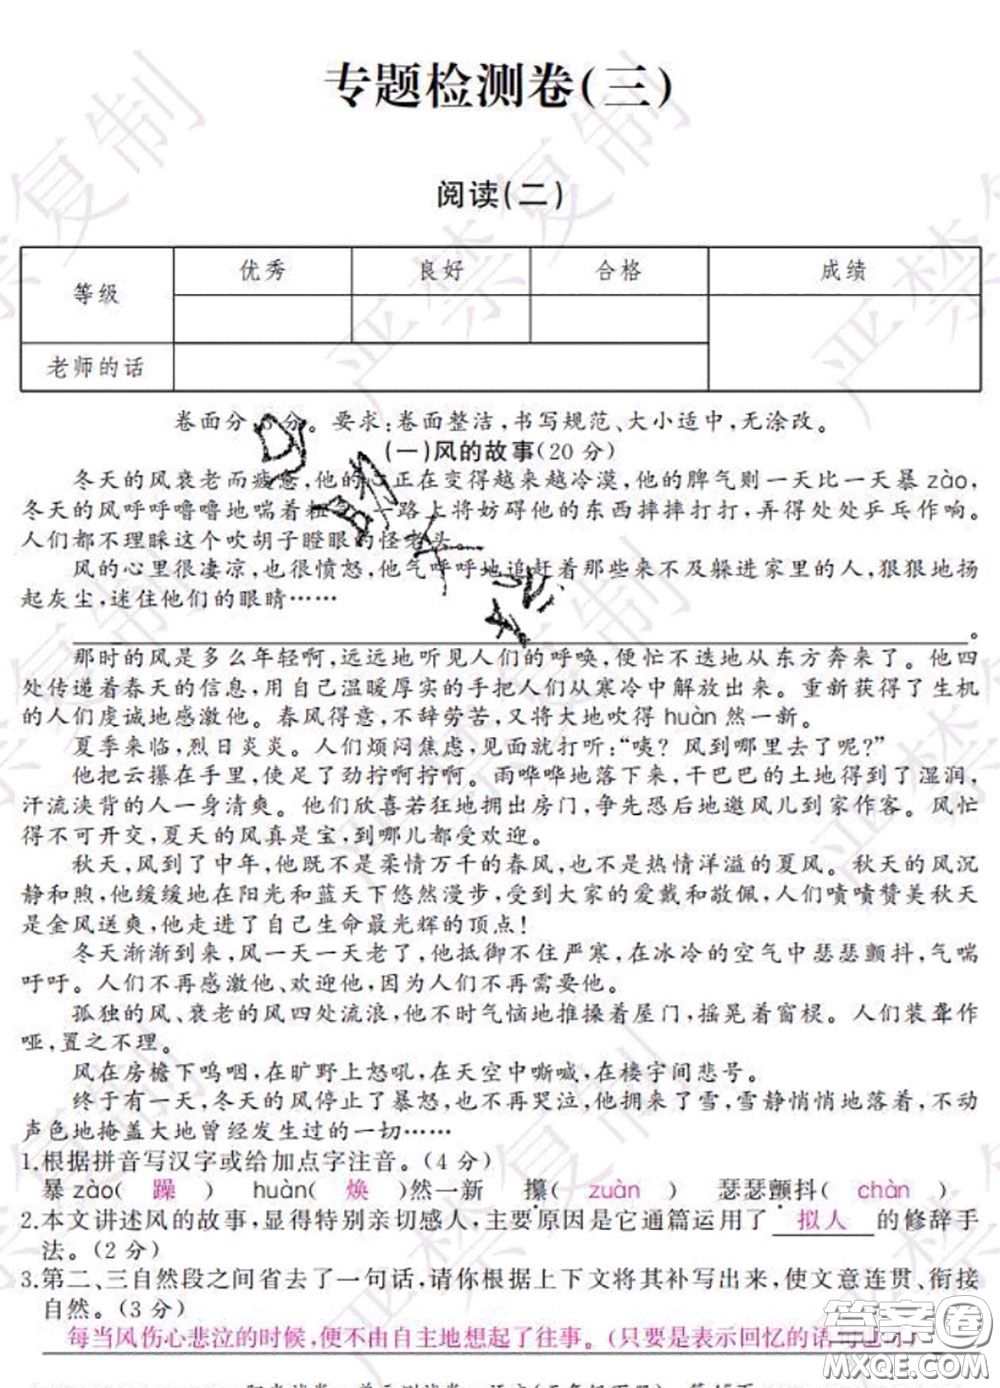 专题检测卷(三)
阅读(二)
等级 优秀 良好 合格 成绩
老师的话
卷面分 分。要求:卷面整洁,书写规范、大小适中,无涂改。
(一)风的故事(20分)
冬天的风衰老而疲惫,他的心正在变得越来越冷漠,他的脾气则一天比一天暴zào,
冬天的风呼呼噜噜地喘着粗 一路上将妨碍他的东西摔摔打打,弄得处处乒乓作响。
人们都不理睬这个吹胡子瞪眼的怪老头
风的心里很凄凉,也很愤怒,他气呼呼地追赶着那些来不及躲进家里的人,狠狠地扬
起灰尘,迷住他们的眼睛……
。
那时的风是多么年轻啊,远远地听见人们的呼唤,便忙不迭地从东方奔来了。他四
处传递着春天的信息,用自己温暖厚实的手把人们从寒冷中解放出来。重新获得了生机
的人们虔诚地感激他。春风得意,不辞劳苦,又将大地吹得huàn然一新。
夏季来临,烈日炎炎。人们烦闷焦虑,见面就打听:“咦?风到哪里去了呢?”
他把云攥在手里,使足了劲拧啊拧啊。雨哗哗地落下来,干巴巴的土地得到了湿润,
汗流浃背的人一身清爽。他们欣喜若狂地拥出房门,争先恐后地邀风儿到家作客。风忙
得不可开交,夏天的风真是宝,到哪儿都受欢迎。
秋天,风到了中年,他既不是柔情万千的春风,也不是热情洋溢的夏风。秋天的风沉
静和煦,他缓缓地在阳光和蓝天下悠然漫步,受到大家的爱戴和敬佩,人们啧啧赞美秋天
是金风送爽,他走进了自己生命最光辉的顶点!
冬天渐渐到来,风一天一天老了,他抵御不住严寒,在冰冷的空气中瑟瑟颤抖,气喘
吁吁。人们不再感激他、欢迎他,因为人们不再需要他。
孤独的风、衰老的风四处流浪,他不时气恼地推搡着屋门,摇晃着窗棂。人们装聋作
哑,置之不理。
风在房檐下呜咽,在旷野上怒吼,在天空中嘶喊,在楼宇间悲号。
终于有一天,冬天的风停止了暴怒,也不再哭泣,他拥来了雪,雪静悄悄地落着,不动
声色地掩盖大地曾经发生过的一切……
1.根据拼音写汉字或给加点字注音。(4分)
暴zào( 躁 ) huàn( 焕 )然一新 攥( zuàn ) 瑟瑟颤抖( chàn )
2.本文讲述风的故事,显得特别亲切感人,主要原因是它通篇运用了 拟人 的修辞手
法。(2分)
3.第二、三自然段之间省去了一句话,请你根据上下文将其补写出来,使文意连贯、衔接
自然。(3分)
每当风伤心悲泣的时候,便不由自主地想起了往事。(只要是表示回忆的话句也可)
答案圈
MXQE.COM